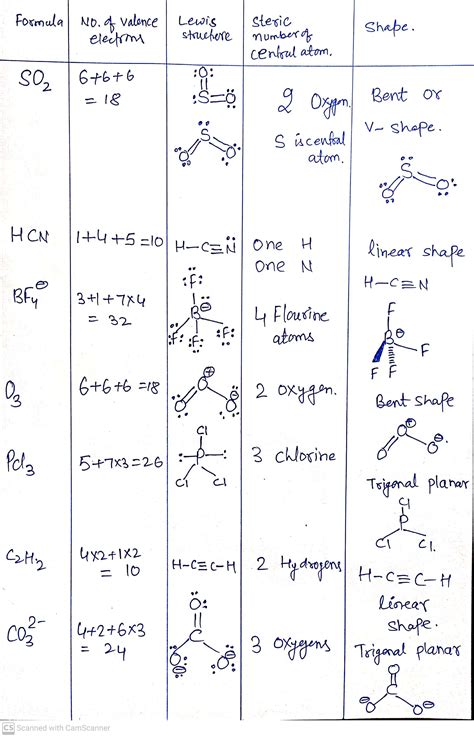 Formula | No. of valence electrons | Lewis structure | Steric number of central atom. | Shape.
SO2 | 6+6+6 = 18 | :O: S=O | 2 Oxygen. S is central atom. | Bent or V-shape.
S O O | S O O
HCN | 1+4+5=10 | H-C≡N | One H One N | linear shape H-C≡N
BF4⊖ | 3+1+7x4 = 32 | :F: B⊖ :F: :F: :F: | 4 Flourine atoms | F B⊖ F F F
O3 | 6+6+6=18 | O⊕ O O⊖ | 2 oxygen. | Bent shape O⊕ O O⊖
Pcl3 | 5+7x3=26 | Cl P Cl Cl | 3 chlorine | Trigonal planar Cl P Cl Cl.
C2H2 | 4x2+1x2 = 10 | H-C≡C-H | 2 Hydrogens | H-C≡C-H linear shape.
CO3 2- | 4+2+6x3 = 24 | O: C :O:⊖ O:⊖ | 3 oxygens | Trigonal planar O C ⊖O O⊖
CS Scanned with CamScanner